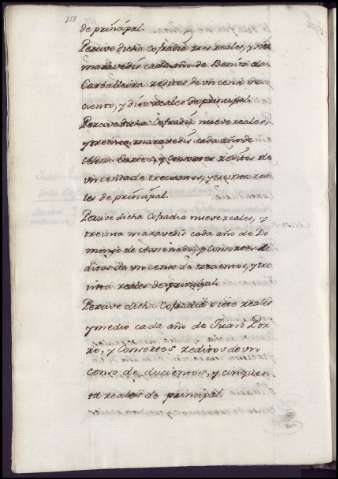 de prinzipal.
Percive dicha Cofradia tres reales, y
maravedis cada año de Benito de
Carballeira reditos de un censo
ciento, y diez reales de principal.
Percive dicha Cofradia nueve reales,
y treinta maravedis cada año de
y Consortes reditos de
un censo de trecientos, y treinta rea-
les de principal.
Percive dicha Cofradia nueve reales, y
treinta maravedis cada año de Do-
mingo de y Consortes re-
ditos de un censo de trecientos, y tre-
inta reales de principal.
Percive dicha Cofradia siete reales
y medio cada año de Juan Do-
y Consortes reditos de un
censo de ducientos, y cinquen-
ta reales de principal.